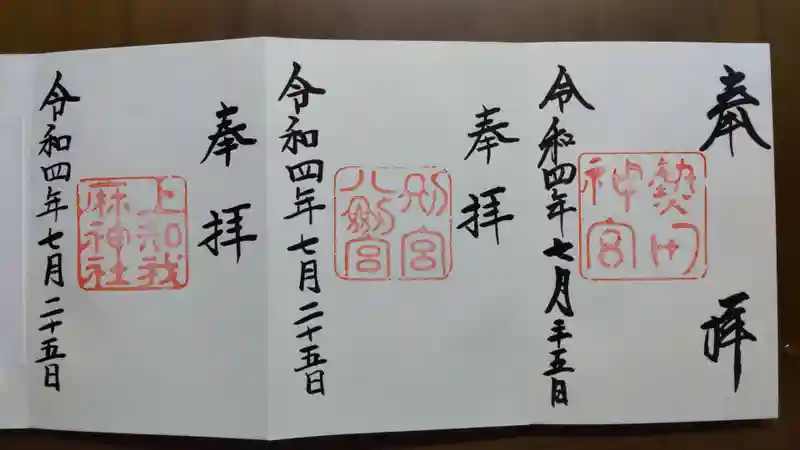 奉拝
熱田神宮
令和四年七月二十五日
奉拝
別宮八剱宮
令和四年七月二十五日
奉拝
上知我麻神社
令和四年七月二十五日